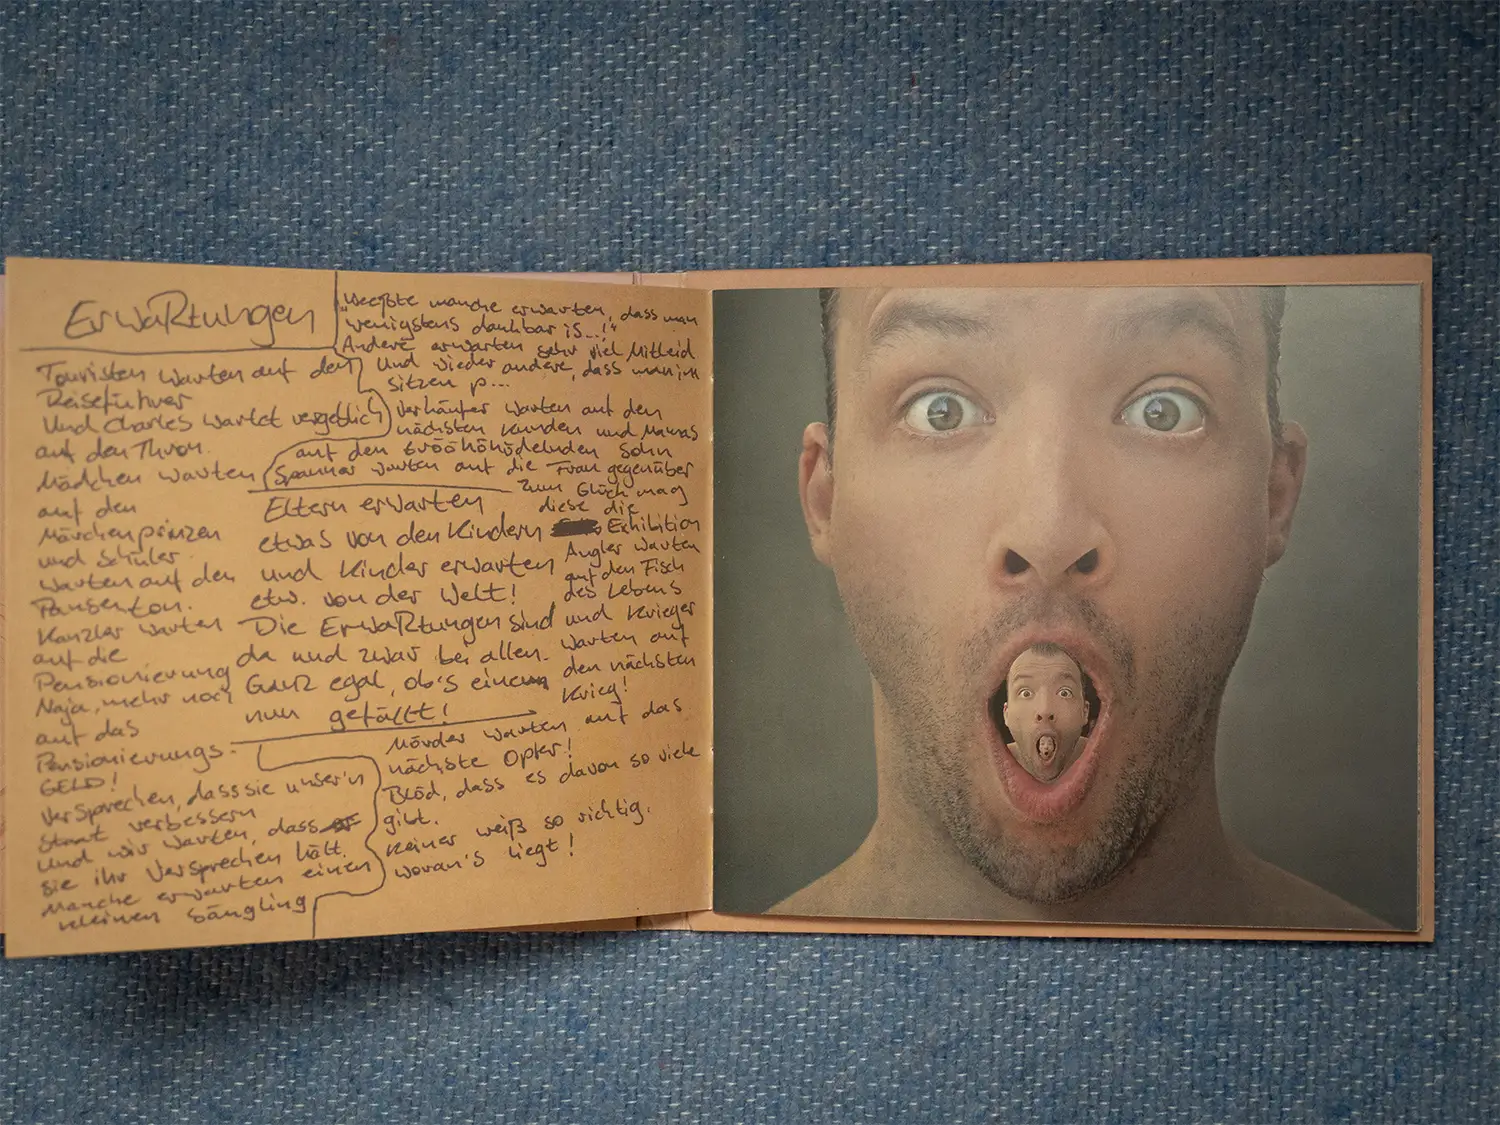 ErwaRtungen
Touristen warten auf den
Reiseführer
Und Charles wartet vergeblich
auf den Thron.
Mädchen warten
auf den
Märchenprinzen
und Schüler
warten auf den
Pausenton.
Kanzler warten
auf die
Pensionierung
Naja, mehr noch
auf das
Pensionierungs-
GELD!
Versprechen, dass sie unser'n
Staat verbessern
Und wir warten, dass
sie ihr Versprechen hält.
Manche erwarten einen
kleinen Säugling
manche erwarten, dass man
wenigstens dankbar is...!"
Andere erwarten sehr viel Mitleid
Und wieder andere, dass man im
sitzen p...
Verkäufer warten auf den
nächsten Kunden und Mamas
auf den Sohn
Spanner warten auf die Frau gegenüber
Zum Glück mag
diese die
Exhibition
Angler warten
auf den Fisch
des Lebens
und Krieger
warten auf
den nächsten
Krieg!
Eltern erwarten
etwas von den Kindern
und Kinder erwarten
etw. von der Welt!
Die ErwaRtungen sind
da und zwar bei allen.
Ganz egal, ob's einem
nun gefällt!
Mörder warten auf das
nächste Opfer!
Blöd, dass es davon so viele
gibt.
Keiner weiß so richtig,
woran's liegt!